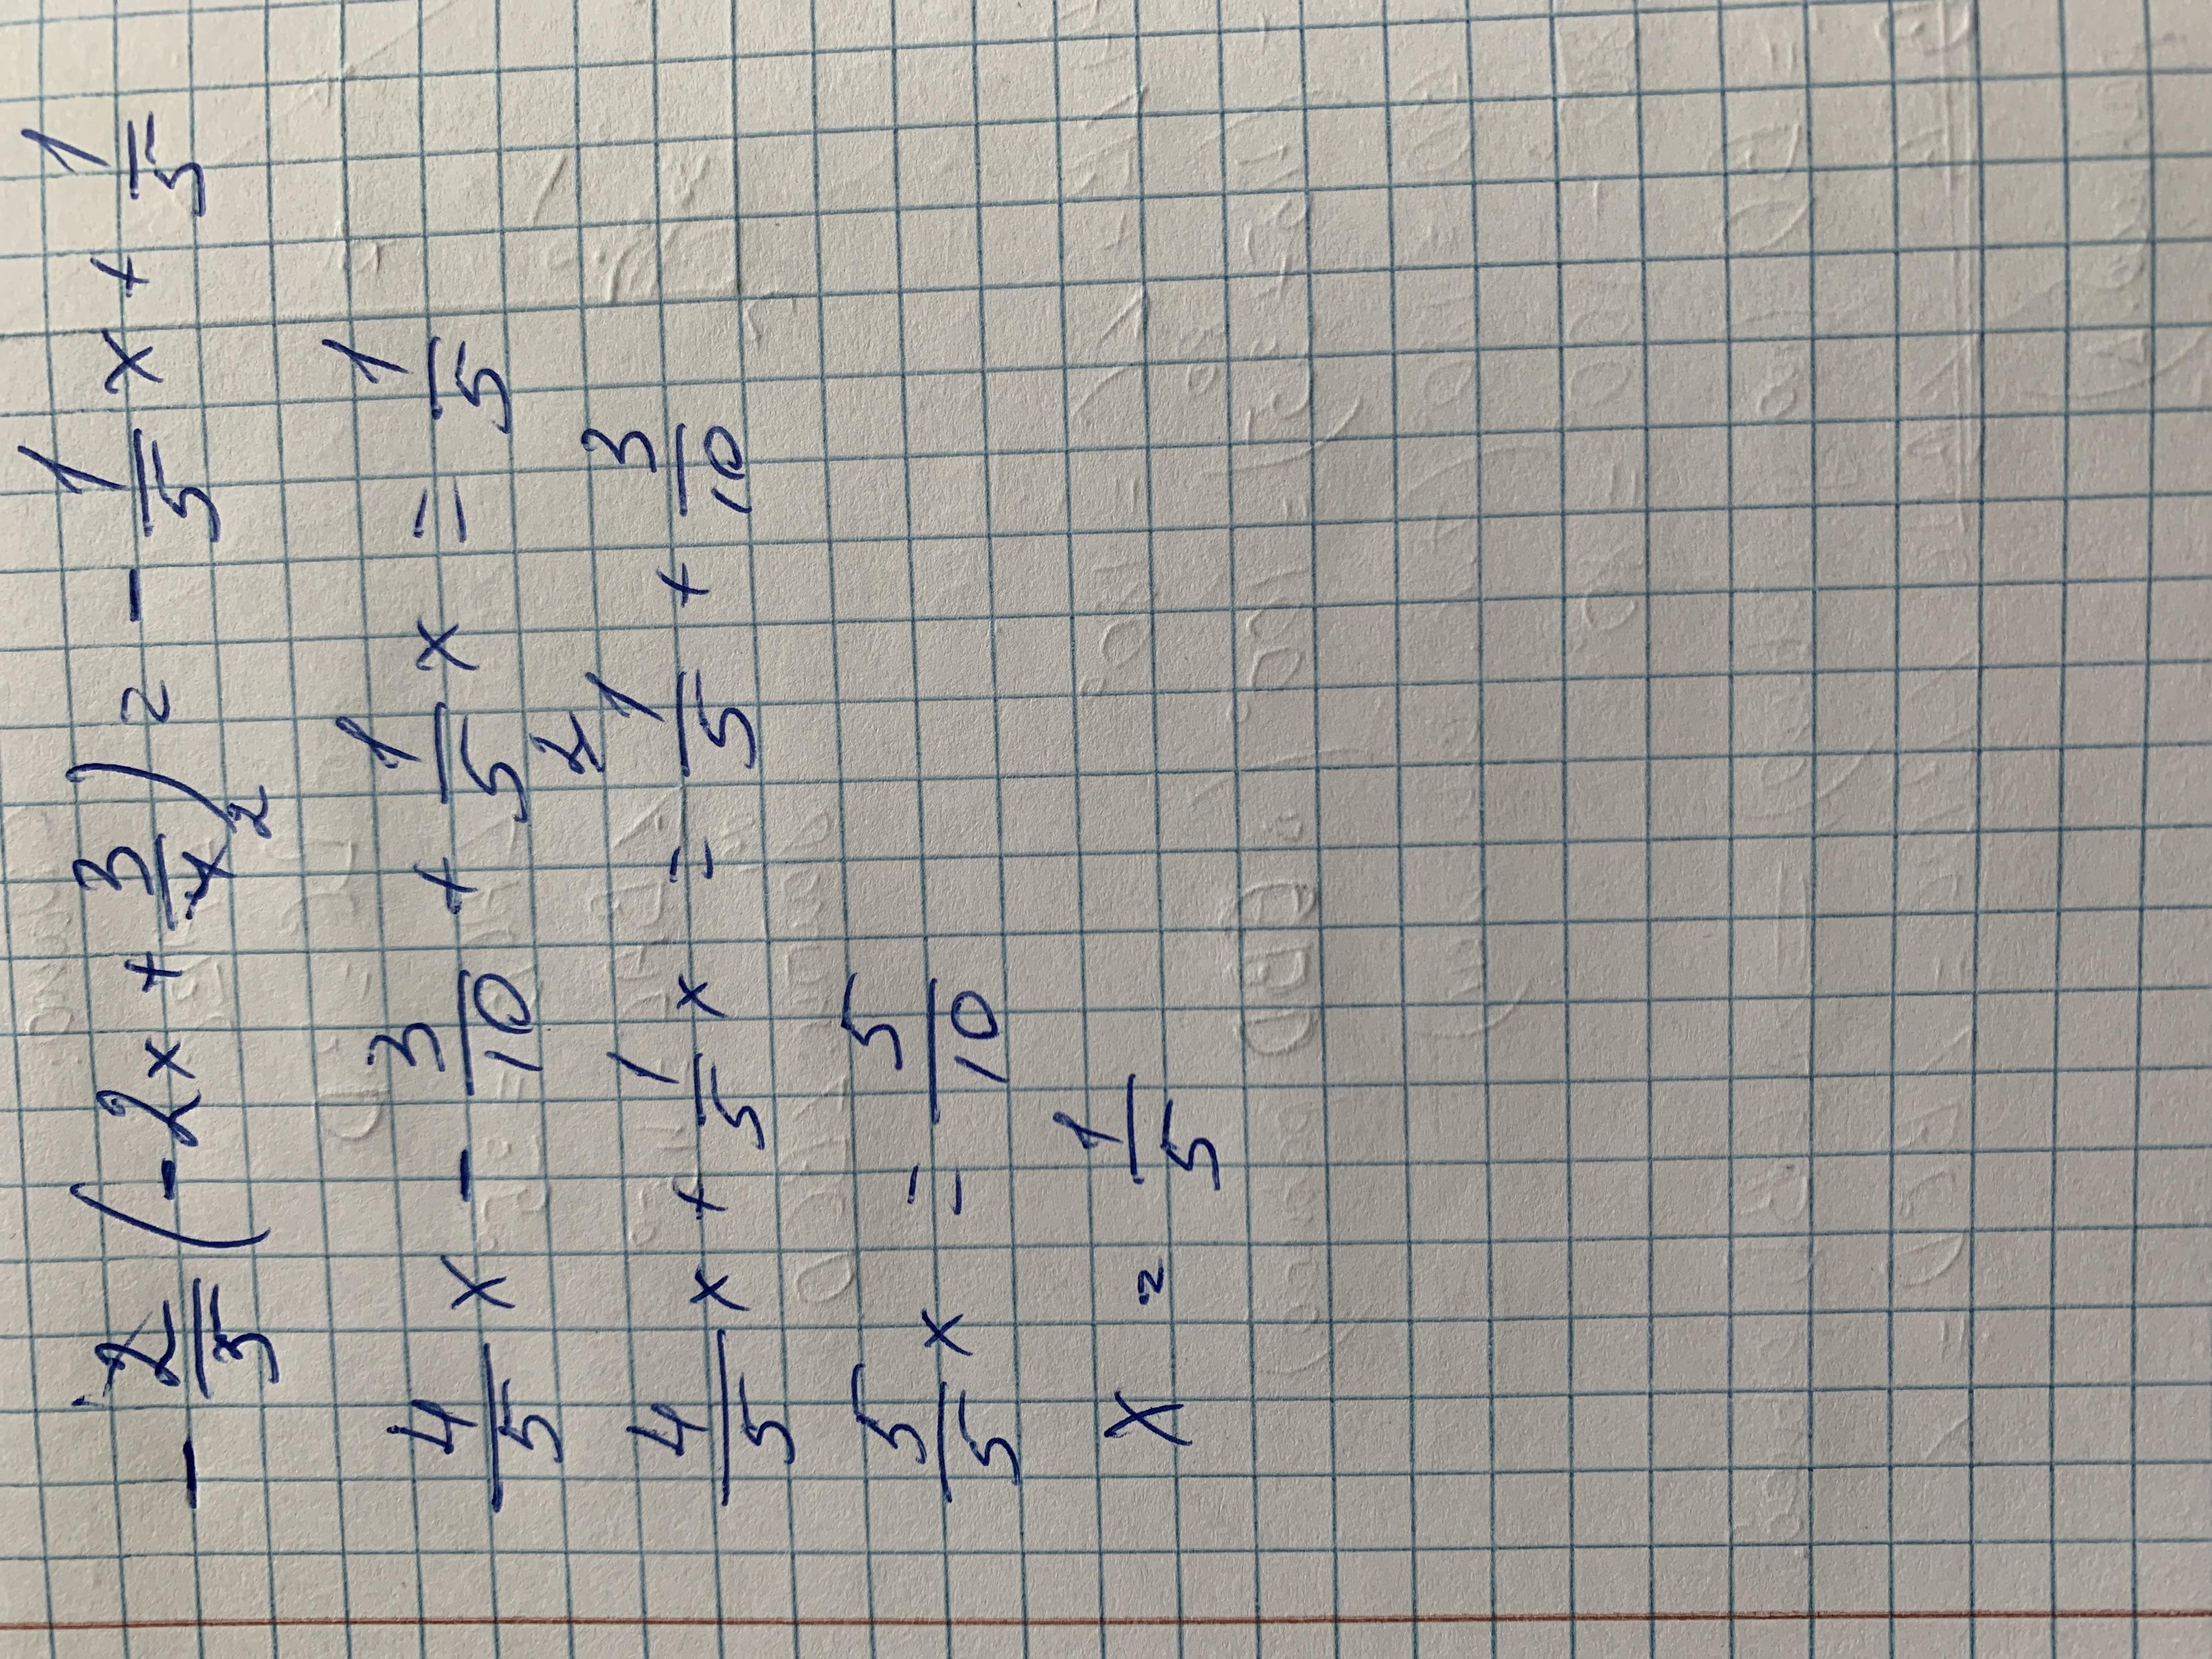 - 2/5 (-2x + 3/4) = - 1/5 x + 1/5
4/5 x - 3/10 + 1/5 x = 1/5
4/5 x + 1/5 x = 1/5 + 3/10
5/5 x = 5/10
x = 1/5